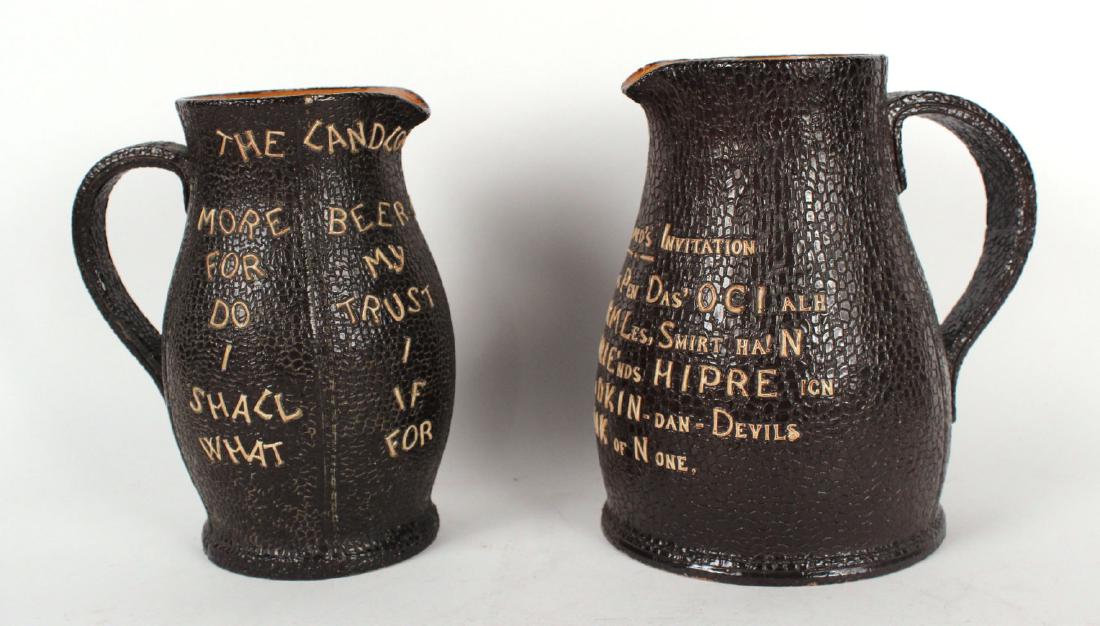 THE LANDLO
MORE BEER
FOR MY
DO TRUST
I I
SHALL IF
WHAT FOR
INVITATION
PEN DAS' OCI ALH
LES, SMIRT HA! N
NDS HIPRE IGN
KIN-DAN-DEVILS
OF NONE,